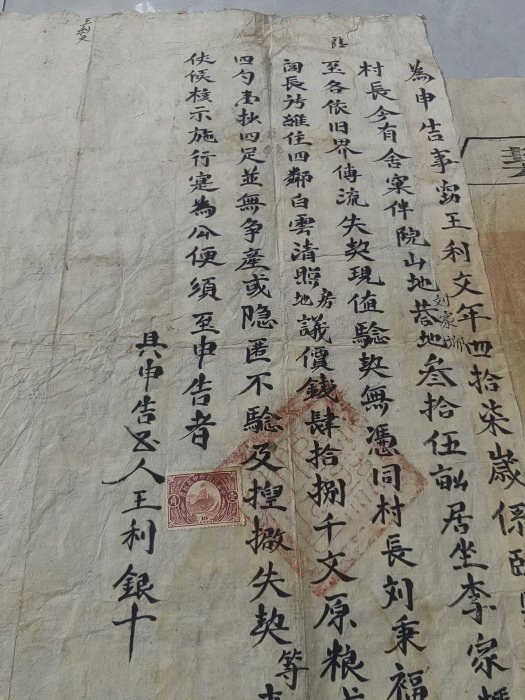 為申告事竊王利文年四拾柒歲係臨
村長今有舍窯伴院山地塔地叁拾伍畝居坐李家
刘家
至各依旧界傳流失契現值驗契無憑同村長刘秉福
閭長許維住四鄰白雲清照房地議價錢肆拾捌千文原粮
四勺壹抄四足並無争產或隐匿不驗及揑撒失契等
伏候核示施行寔為公便須至申告者
具申告書人王利銀十
王利文
臨